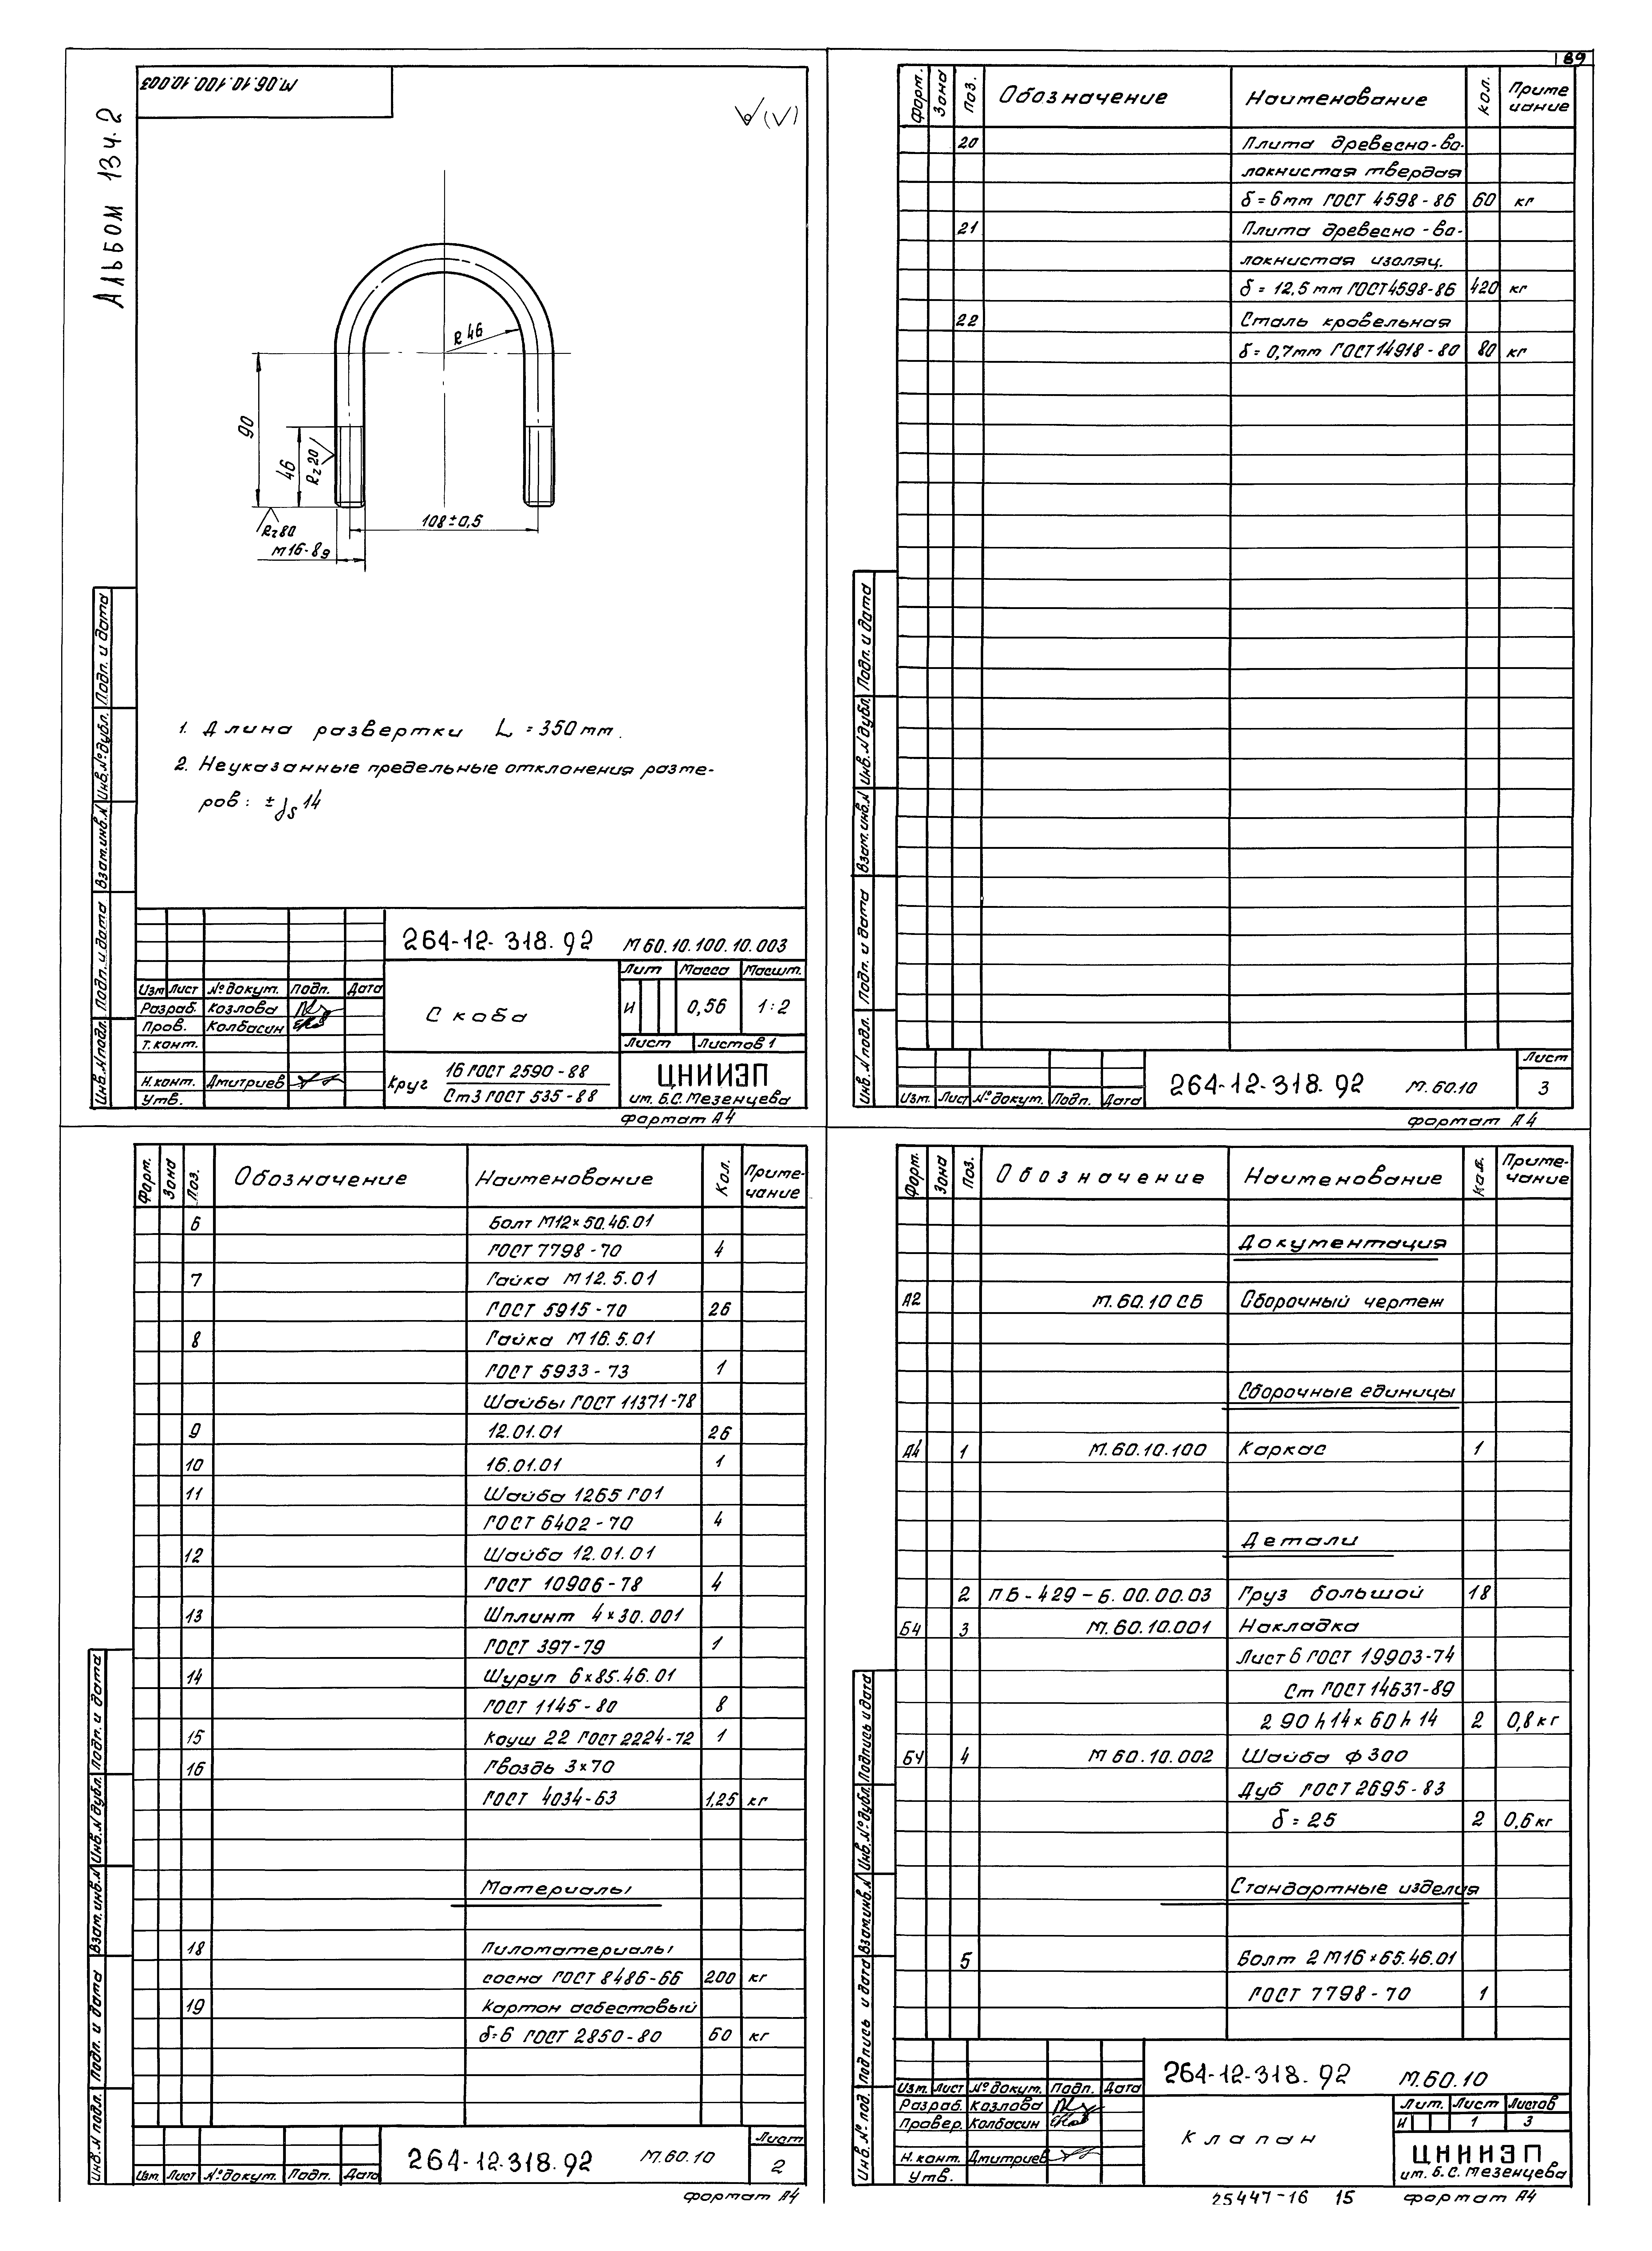 Альбом 13 ч. 2
М.06.10.100.10.003
√(√)
R 46
90
46
Rz 20
Rz 80
108±0,5
М16-8g
1. Длина развертки L = 350 mm.
2. Неуказанные предельные отклонения разме-
ров: ± js 14
264-12-318.92 М60.10.100.10.003
Лит Масса Масшт.
Изм Лист № докум. Подп. Дата
И 0,56 1:2
Разраб. Козлова
Пров. Колбасин
Т. конт.
Скоба
Лист Листов 1
Н. конт. Дмитриев
Утв.
Круг 16 ГОСТ 2590-88
Ст3 ГОСТ 535-88
ЦНИИЭП
им. Б.С. Мезенцева
Формат А4
Инв. № подл. Подп. и дата Взам. инв. № Инв. № дубл. Подп. и дата
89
Форм. Зона Поз. Обозначение Наименование Кол. Приме
чание
20 Плита древесно-во-
локнистая твердая
δ = 6 mm ГОСТ 4598-86 60 кг
21 Плита древесно-во-
локнистая изоляц.
δ = 12,5 mm ГОСТ 4598-86 420 кг
22 Сталь кровельная
δ = 0,7 mm ГОСТ 14918-80 80 кг
Инв. № подл. Подп. и дата Взам. инв. № Инв. № дубл. Подп. и дата
Изм. Лист № докум. Подп. Дата
264-12-318.92 М.60.10
Лист
3
Формат А4
Форм. Зона Поз. Обозначение Наименование Кол. Приме-
чание
6 Болт М12×50.46.01
ГОСТ 7798-70 4
7 Гайка М12.5.01
ГОСТ 5915-70 26
8 Гайка М16.5.01
ГОСТ 5933-73 1
Шайбы ГОСТ 11371-78
9 12.01.01 26
10 16.01.01 1
11 Шайба 1265 Г01
ГОСТ 6402-70 4
12 Шайба 12.01.01
ГОСТ 10906-78 4
13 Шплинт 4×30.001
ГОСТ 397-79 1
14 Шуруп 6×85.46.01
ГОСТ 1145-80 8
15 Коуш 22 ГОСТ 2224-72 1
16 Гвоздь 3×70
ГОСТ 4034-63 1,25 кг
Материалы
18 Пиломатериалы
сосна ГОСТ 8486-66 200 кг
19 Картон асбестовый
δ=6 ГОСТ 2850-80 60 кг
Инв. № подл. Подп. и дата Взам. инв. № Инв. № дубл. Подп. и дата
Изм. Лист № докум. Подп. Дата
264-12-318.92 М.60.10
Лист
2
Формат А4
Форм. Зона Поз. Обозначение Наименование Кол. Приме-
чание
Документация
А2 М.60.10 СБ Сборочный чертеж
Сборочные единицы
А4 1 М.60.10.100 Каркас 1
Детали
2 ПБ-429-Б.00.00.03 Груз большой 18
Б4 3 М.60.10.001 Накладка
Лист 6 ГОСТ 19903-74
Ст ГОСТ 14637-89
290 h14 × 60 h 14 2 0,8 кг
Б4 4 М 60.10.002 Шайба ф 300
Дуб ГОСТ 2695-83
δ = 25 2 0,6 кг
Стандартные изделия
5 Болт 2 М16×65.46.01
ГОСТ 7798-70 1
Инв. № под. Подпись и дата Взам. инв. № Инв. № дубл. Подпись и дата
264-12-318.92 М.60.10
Изм. Лист № докум. Подп. Дата
Разраб. Козлова
Провер. Колбасин
Н. конт. Дмитриев
Утв.
Клапан
Лит. Лист Листов
И 1 3
ЦНИИЭП
им. Б.С. Мезенцева
25447-16 15 Формат А4